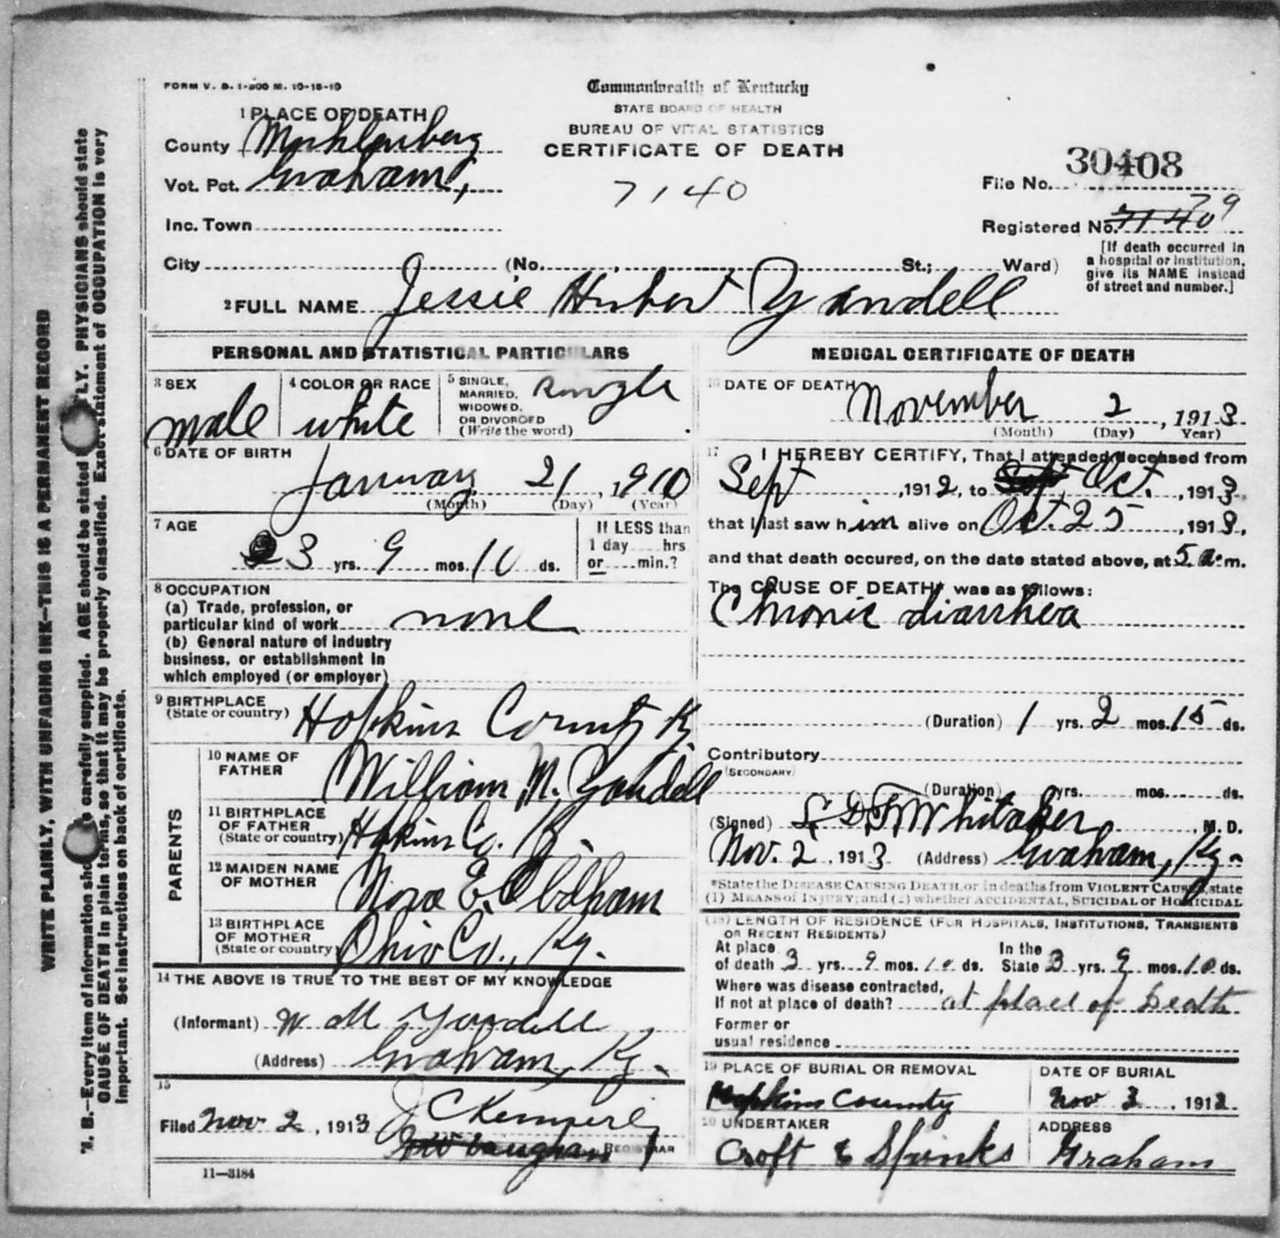 FORM V. S. 1-300 M. 10-18-10
Commonwealth of Kentucky
STATE BOARD OF HEALTH
BUREAU OF VITAL STATISTICS
CERTIFICATE OF DEATH
1 PLACE OF DEATH
County Muhlenberg
Vot. Pct. Graham,
Inc. Town
7140
File No. 30408
Registered No. 7140 79
City (No. , St.; Ward)
[If death occurred in a hospital or institution, give its NAME instead of street and number.]
2 FULL NAME Jessie Hubert Yandell
PERSONAL AND STATISTICAL PARTICULARS
3 SEX
male
4 COLOR OR RACE
white
5 SINGLE, MARRIED, WIDOWED, OR DIVORCED (Write the word)
single
6 DATE OF BIRTH
January 21, 1910
(Month) (Day) (Year)
7 AGE
3 yrs. 9 mos. 10 ds.
If LESS than 1 day hrs or min.?
8 OCCUPATION
(a) Trade, profession, or particular kind of work none
(b) General nature of industry business, or establishment in which employed (or employer)
9 BIRTHPLACE
(State or country) Hopkins County Ky
PARENTS
10 NAME OF FATHER William M. Yandell
11 BIRTHPLACE OF FATHER (State or country) Hopkins Co. Ky.
12 MAIDEN NAME OF MOTHER Nora E. Oldham
13 BIRTHPLACE OF MOTHER (State or country) Ohio Co., Ky.
14 THE ABOVE IS TRUE TO THE BEST OF MY KNOWLEDGE
(Informant) W M Yandell
(Address) Graham, Ky.
15
Filed Nov 2, 1913 J C Kemper
REGISTRAR
11-3184
MEDICAL CERTIFICATE OF DEATH
16 DATE OF DEATH
November 2, 1913
(Month) (Day) Year)
17 I HEREBY CERTIFY, That I attended deceased from
Sept, 1912, to Sept Oct., 1913
that I last saw him alive on Oct. 25, 1913,
and that death occured, on the date stated above, at 5 a. m.
The CAUSE OF DEATH was as follows:
Chronic diarrhea
(Duration) 1 yrs. 2 mos. 15 ds.
Contributory
(SECONDARY)
(Duration) yrs. mos. ds.
(Signed) Whitaker, M. D.
Nov. 2, 1913 (Address) Graham, Ky.
*State the DISEASE CAUSING DEATH, or in deaths from VIOLENT CAUSES, state
(1) MEANS of INJURY; and (2) whether ACCIDENTAL, SUICIDAL or HOMICIDAL
(18) LENGTH OF RESIDENCE (FOR HOSPITALS, INSTITUTIONS, TRANSIENTS OR RECENT RESIDENTS)
At place of death 3 yrs. 9 mos. 10 ds. In the State 3 yrs. 9 mos. 10 ds.
Where was disease contracted,
If not at place of death? at place of Death
Former or usual residence
19 PLACE OF BURIAL OR REMOVAL
Hopkins County
DATE OF BURIAL
Nov 3, 1913
20 UNDERTAKER
Croft & Spinks
ADDRESS
Graham
WRITE PLAINLY, WITH UNFADING INK—THIS IS A PERMANENT RECORD
N. B.—Every item of information should be carefully supplied. AGE should be stated EXACTLY. PHYSICIANS should state
CAUSE OF DEATH in plain terms, so that it may be properly classified. Exact statement of OCCUPATION is very
important. See instructions on back of certificate.